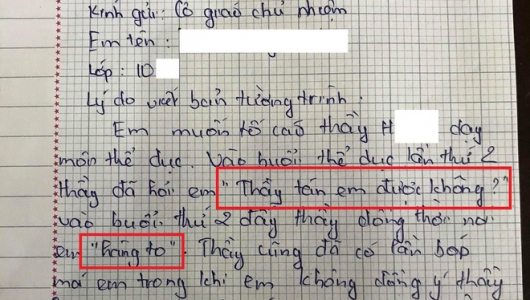 Kính gửi: Cô giáo chủ nhiệm
Em tên:
Lớp: 10
Lý do viết bản tường trình.
Em muốn tố cáo thầy H dạy
môn thể dục. Vào buổi thể dục lần thứ 2
thầy đã hỏi em "Thầy tán em được không?"
vào buổi thứ 2 đấy thầy đồng thời nói
em "hàng to". Thầy cũng đã có lần bóp
má em trong khi em không đồng ý thầy